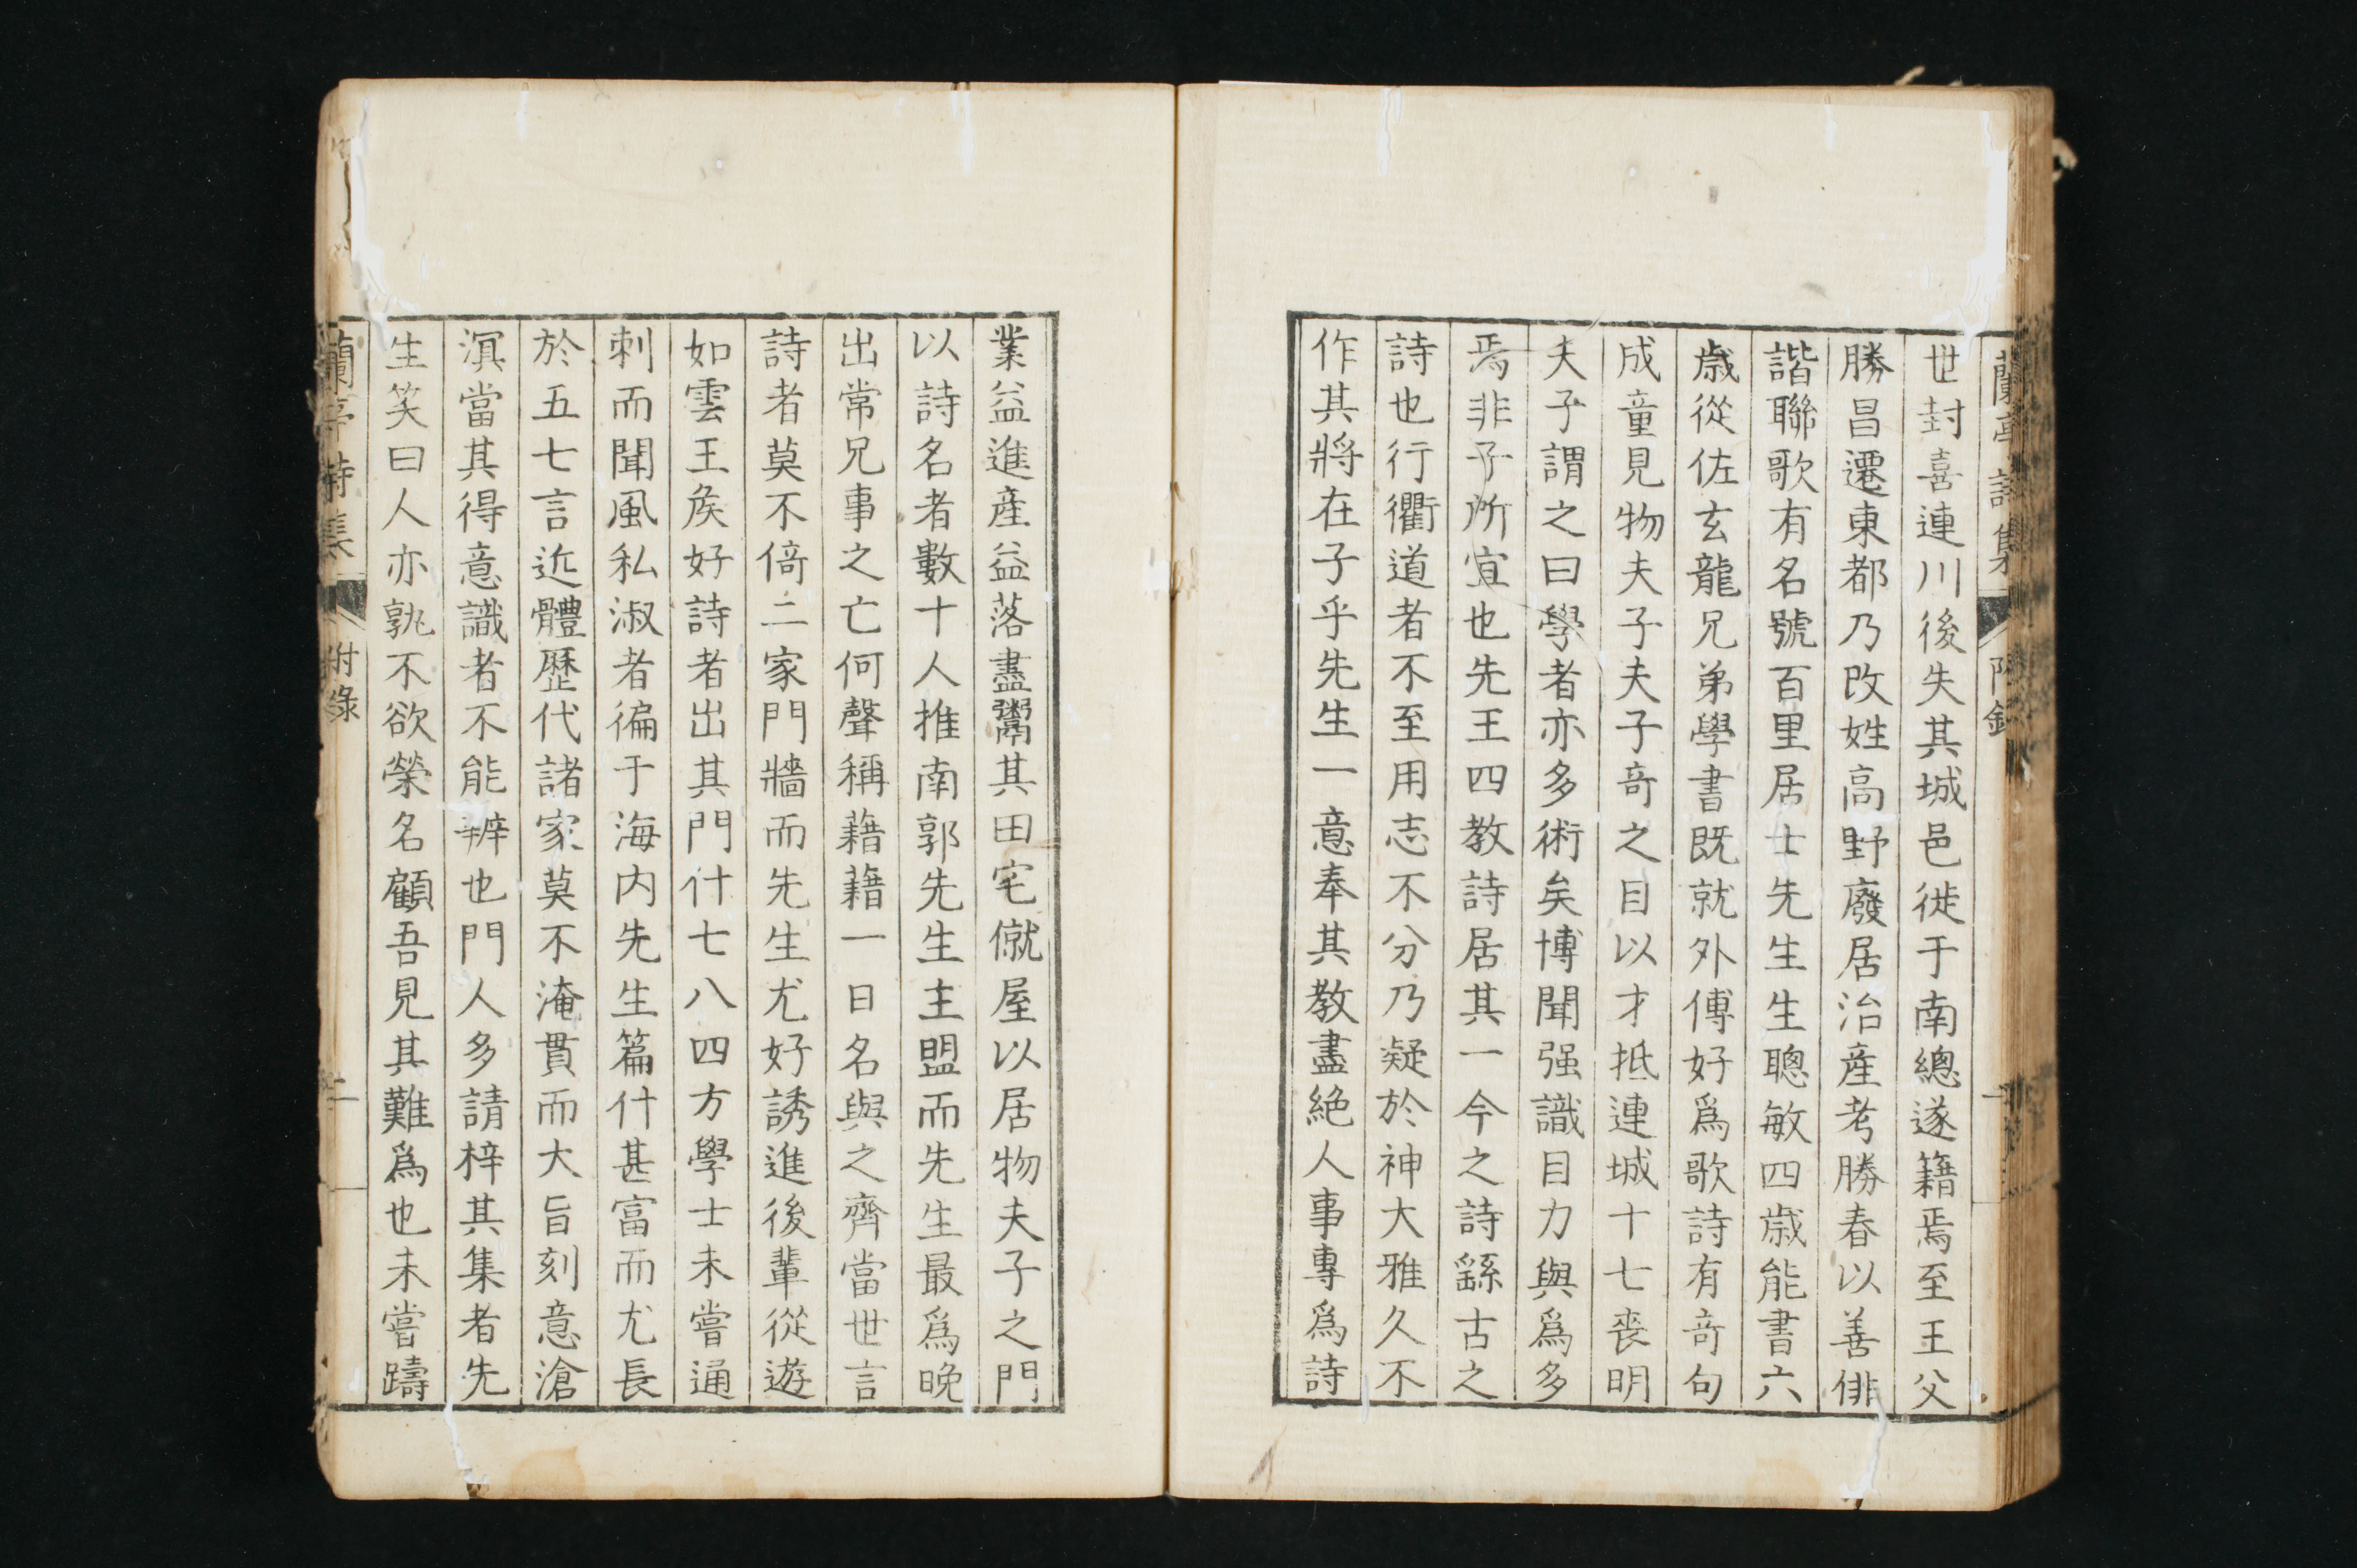 蘭亭詩集 附錄
世封喜連川後失其城邑徙于南總遂籍焉至王父
勝昌遷東都乃改姓高野廢居治產考勝春以善俳
諧聯歌有名號百里居士先生生聰敏四歲能書六
歲從佐玄龍兄弟學書既就外傅好爲歌詩有奇句
成童見物夫子夫子奇之目以才抵連城十七喪明
夫子謂之曰學者亦多術矣博聞强識目力與爲多
焉非子所宜也先王四教詩居其一今之詩繇古之
詩也行衢道者不至用志不分乃疑於神大雅久不
作其將在子乎先生一意奉其教盡絕人事專爲詩
業益進產益落盡鬻其田宅僦屋以居物夫子之門
以詩名者數十人推南郭先生主盟而先生最爲晚
出常兄事之亡何聲稱藉藉一日名與之齊當世言
詩者莫不倚二家門牆而先生尤好誘進後輩從遊
如雲王矦好詩者出其門什七八四方學士未嘗通
刺而聞風私淑者徧于海内先生篇什甚富而尤長
於五七言近體歷代諸家莫不淹貫而大旨刻意滄
溟當其得意識者不能辨也門人多請梓其集者先
生笑曰人亦孰不欲榮名顧吾見其難爲也未嘗躊
蘭亭詩集 附錄 二